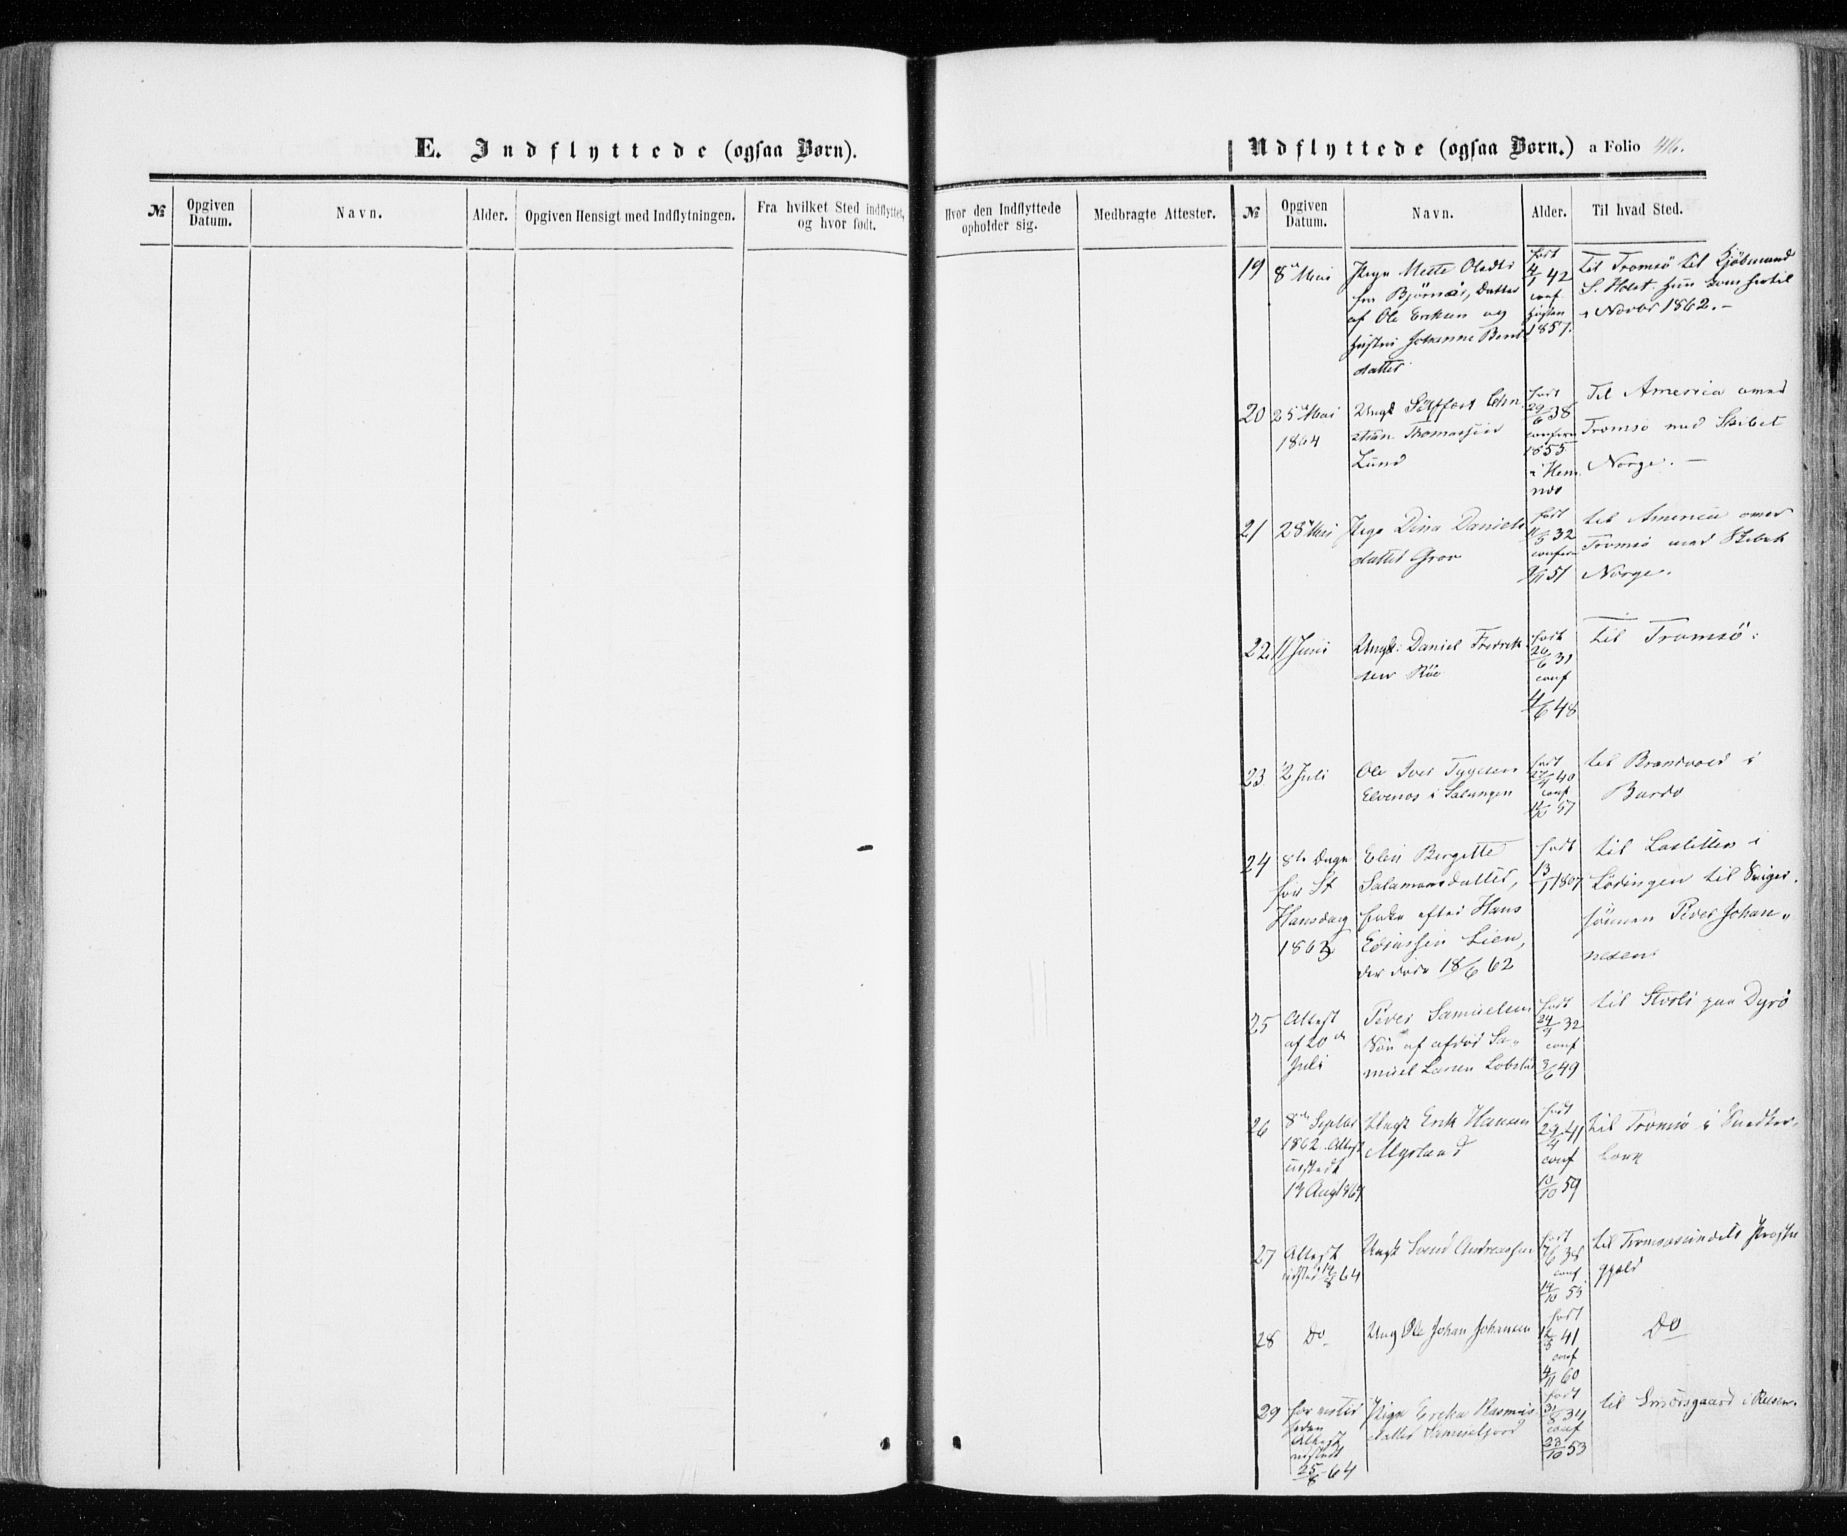 E. Indflyttede (ogsaa Børn).
Udflyttede (ogsaa Børn.) a Folio 416.
№
Opgiven Datum.
Navn.
Alder.
Opgiven Hensigt med Indflytningen.
Fra hvilket Sted indflyttet, og hvor født.
Hvor den Indflyttede opholder sig.
Medbragte Attester.
№
Opgiven Datum.
Navn.
Alder.
Til hvad Sted.
19
8de Mai
Pige Mette Olsdtr
fra Bjørnaas, Datter
af Ole Eriksen og
Hustru Johanne Bent
datter
født
4/1 42
conf
Høsten
1857.
til Tromsö til Kjöbmand
S. Holst. hun kom hertil
i Novbr 1862.-
20
25de Mai
1864
Ungk Siffert Chri
stian Thomassen
Lund
født
29/6 38
confirm
1855
i Hem
næs
Til America over
Tromsö med Skibet
Norge. -
21
28de Mai
Pige Dina Daniels
datter Grov
født
11/5 32
confirm
9/11 51
til America over
Tromsö med Skibet
Norge.
22
11 Juni
Ungk: Daniel Fredrik
sen Röe
født
20/6 31
conf
11/6 48
til Tromsö:
23
2 Juli
Ole Iver Tygesen
Elvenes i Salangen
født
27/4 40
conf
11/10 57
til Brandvold i
Bardo
24
8te Dage
før St
Hansdag
1863
Elen Bergette
Salamonsdatter,
Enke efter Hans
Lien,
der døde 18/6 62
født
13/1 1807
til i
Lödingen til Sviger-
sönnen Peder Johan-
nesen
25
Attest
af 20de
Juli
Peder Samuelsen
Sön af afdød Sa-
muel Larsen
født
24/9 32
conf
3/6 49
til paa Dyrö
26
8de Septbr
1862. Attest
udstedt
13 Aug 1864
Ungk Erik Hansen
Myrland
født
29/4 41
conf
10/10 59
til Tromsö i Snedker-
27
Attest
udsted 14/8 64
Ungk Svend Andreassen
født
7/6 38
conf
14/10 55
til Tromsøsundets Præste
gjæld
28
Do
Ung Ole Johan Johansen
født
12/3 41
conf
4/11 60
Do
29
Attest
udstedt
25/8 64
Pige Erika Rasmus
datter
født
31/8 34
conf
23/10 53
til